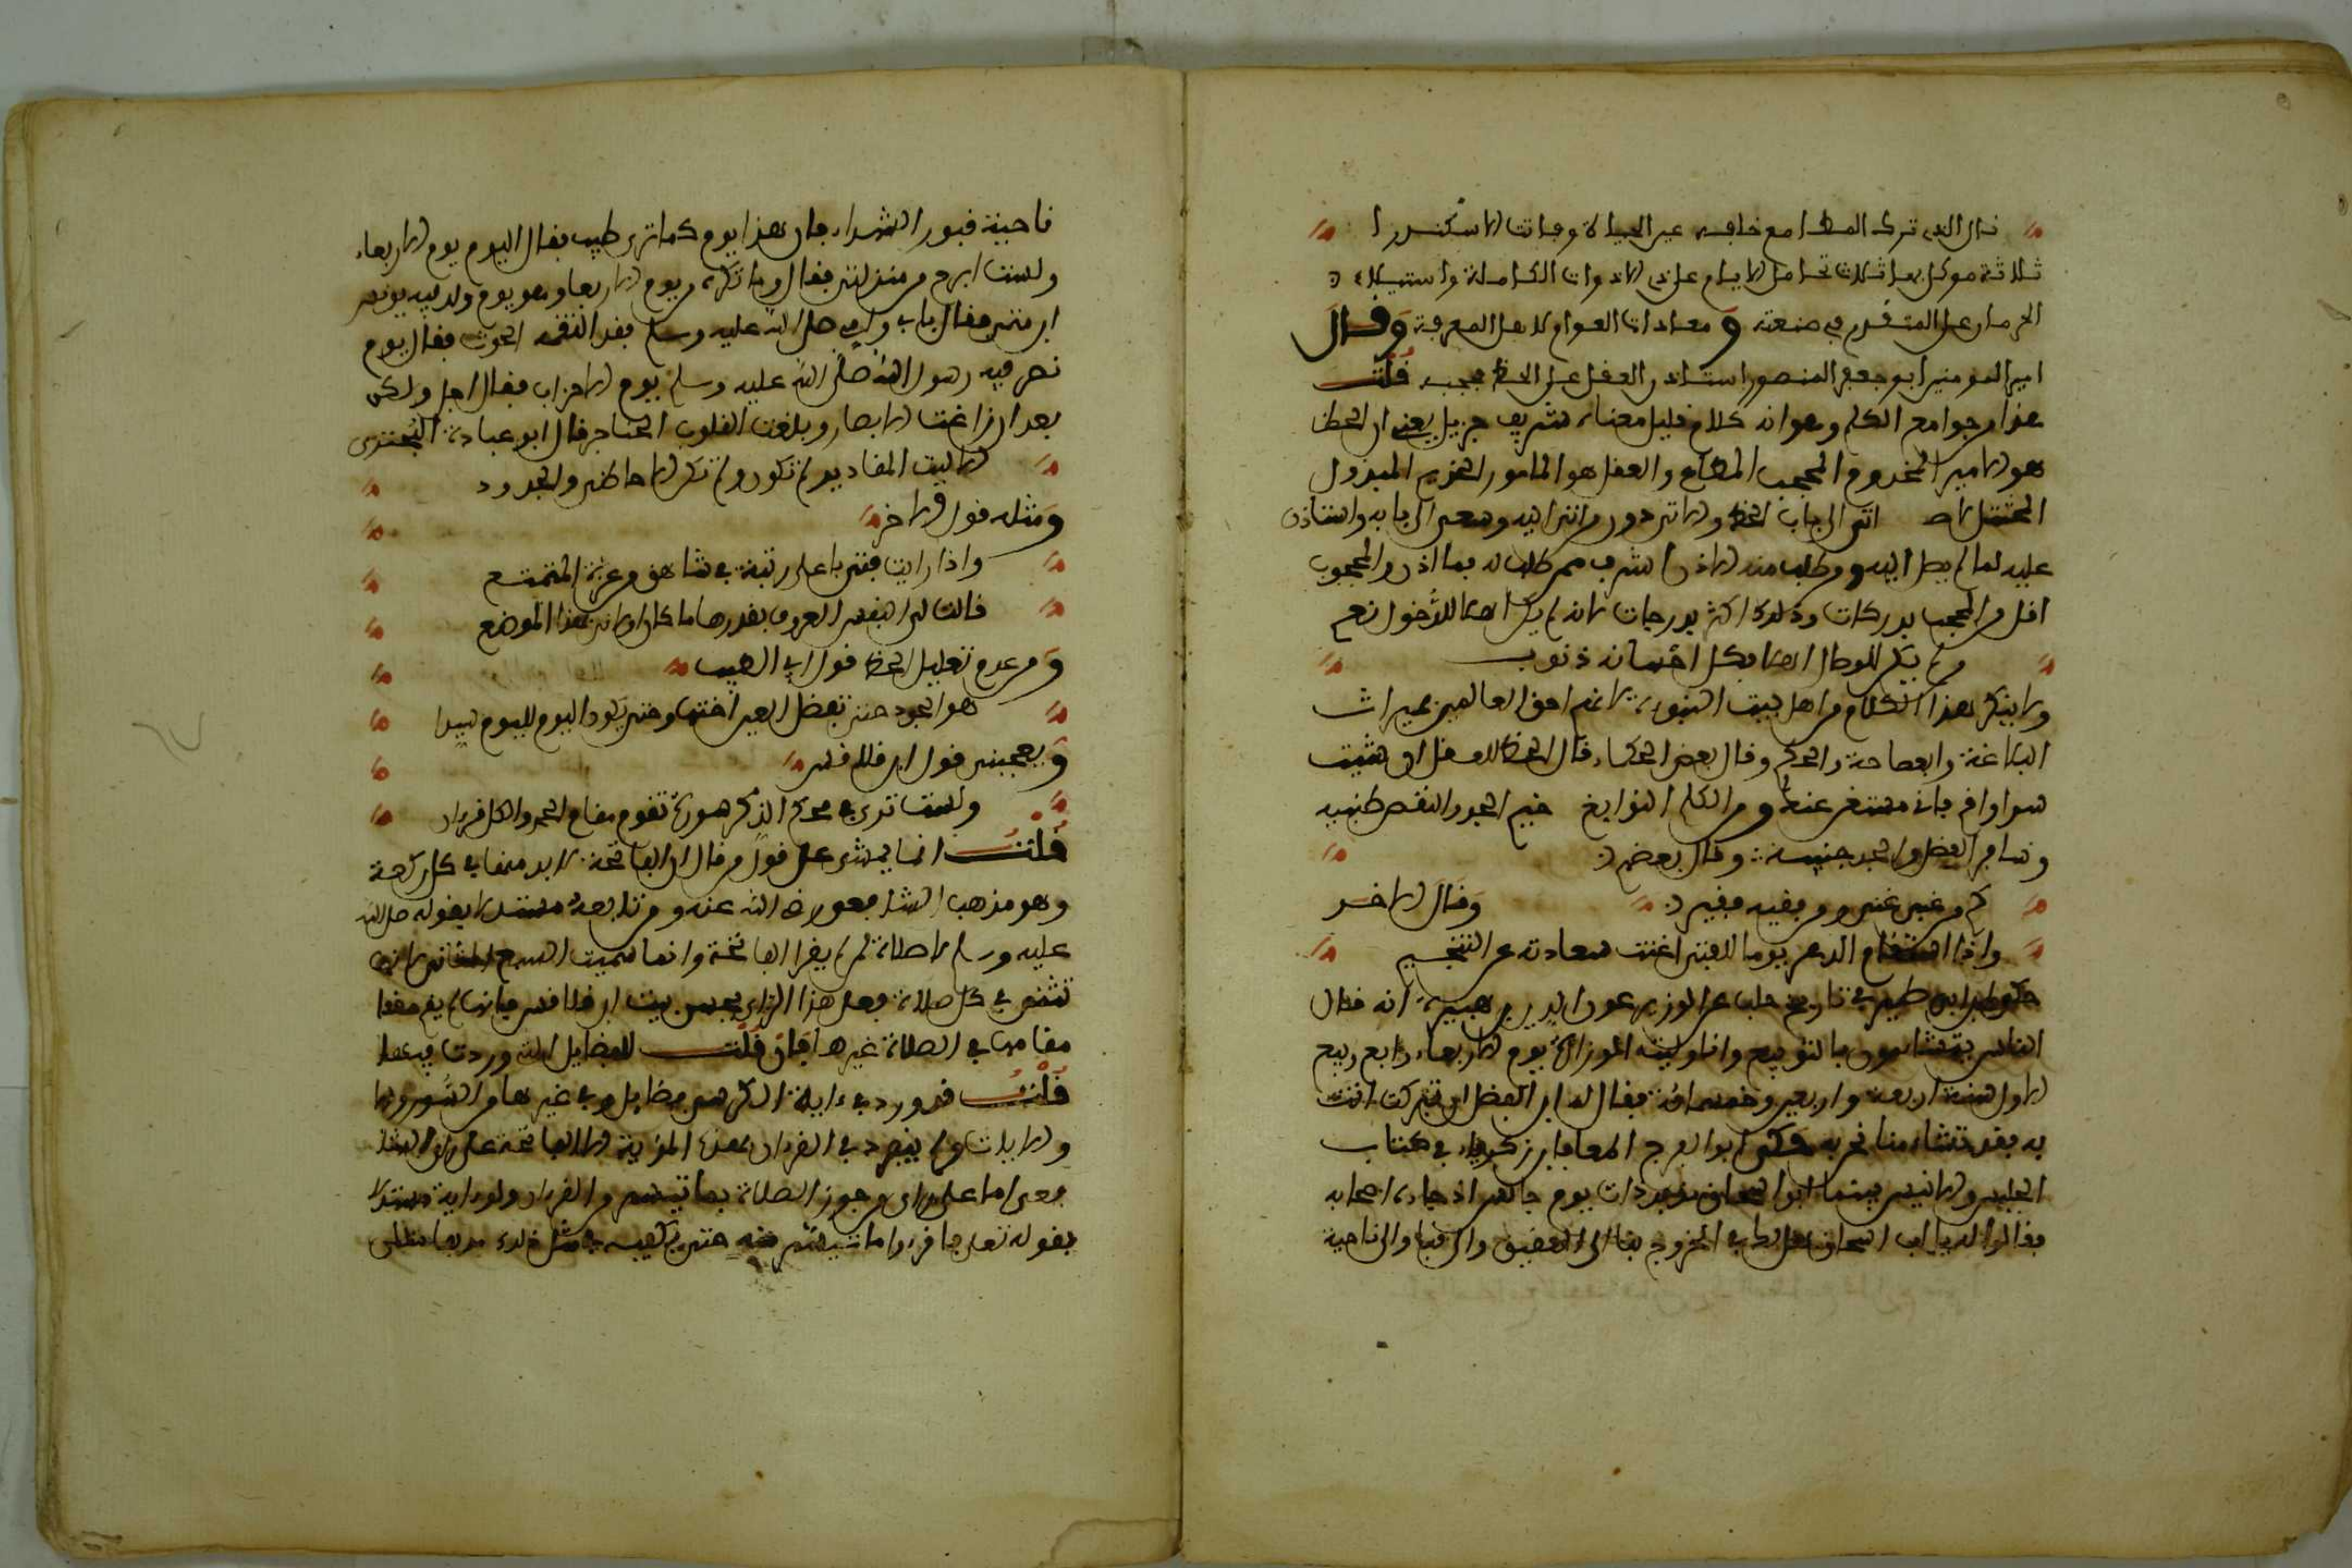 نال الذى ترك المطا مع خافه عين الحياة وفات الاسكندرا
ثلاثة موكل بها ثلاث تحامل الايام على الادوات الكاملة واستيلاء
الحرمان على المتقدم في صنعته ومعادات العوام لاهل المعرفة وقال
امير المومنين ابو جعفر المنصور استاذن العقل على الحظ فحجبه قلت
هذا من جوامع الكلم وهو انه كلام قليل معناه شريف جزيل يعني ان الحظ
هو الامير المخدوم المحجب المطاع والعقل هو المامور الخديم المبذول
اتى الى باب الحظ والا تردد من اتى اليه وسعى الى بابه واستاذن
عليه لما لم يصل اليه وطلب منه الاذن اشرف ممن طلب له فما اذن والمحجوب
اقل من المحجب بدركات وذلك اكثر بدرجات لانه لم يكن اهلا للدخول نعم
من لم يكن للوصال اهلا فكل احسانه ذنوب
ولا ينكر هذا الكلام من اهل بيت النبوءة لانهم احق العالمين بميراث
البلاغة والفصاحة والحكم وقال بعض الحكماء قال الحظ للعقل ان شيت
سر او اقم فاني مستغن عنك ومن الكلم النوابغ خيم المجد والنقص طنبيه
وسافر الفضل والمجد جنيبه وقال بعضهم
كم من غبي غني ومن فقيه فقير وقال الاخر
واذا استقام الدهر يوما للفتى اغنت سعادته عن التنجيم
حكى ابن ابي طي في تاريخ حلب عن الوزير عون الدين بن هبيرة انه قال
الناس يتشامون بالتربيع وانا وليت الوزارة يوم الاربعاء رابع ربيع
الاول سنة اربعة واربعين وخمسمائة فقال له ابن الفضل ان تبركت انت
به فقد تشاءمنا نحن به حكى ابو الفرج المعافا بن زكرياء في كتاب
الجليس والانيس بينما ابو اسحاق مزبد ذات يوم جالس اذ جاءه اصحابه
فقالوا له يا ابا اسحاق هل لك في الخروج بنا الى العقيق والى قبا والى ناحية
ناحية قبور الشهداء فان هذا يوم كما ترى طيب فقال اليوم يوم الاربعاء
ولست ابرح من منزلي فقال وما تكره من يوم الاربعا وهو يوم ولد فيه يونس
ابن متى فقال بابي وامي صلى الله عليه وسلم فقد التقمه الحوت فقال يوم
نصر فيه رسول الله صلى الله عليه وسلم يوم الاحزاب فقال اجل ولكن
بعد ان زاغت الابصار وبلغت القلوب الحناجر قال ابو عبادة البحتري
الا ليت المقادير لم تكون ولم تكن الاحاظي والجدود
ومثله قول الاخر
واذا رايت فتى باعلى رتبة في شاهق من عزة المتمتع
قالت لي النفس العروف بقدرها ما كان اولاني بهذا الموضع
ومن عدم تعليل الحظ قول ابي الطيب
هو الجد حتى تفضل العين اختها وحتى يكون اليوم لليوم سيدا
ويعجبني قول ابن قلاقس
ولست ترى في محكم الذكر سورة تقوم مقام الحمد والكل قرءان
قلت انما يمشي على قول من قال ان الفاتحة لابد منها في كل ركعة
وهو مذهب الشافعي رضي الله عنه ومن تابعه مستدلا بقوله صلى الله
عليه وسلم لا صلاة لمن لم يقرا الفاتحة وانما سميت السبع المثاني لانها
تثنى في كل صلاة فعلى هذا الراي يحسن بيت ابن قلاقس فانها لم يقم مقفا
مقامها في الصلاة غيرها فان قلت للفضايل التي وردت فيها
قلت قد ورد في ءاية الكرسي فضايل وفي غيرها من السور والا
والايات ولم ينفرد في القرءان بهذه المزية الا الفاتحة على راي الشا
فعي اما على راي من جوز الصلاة بما تيسر من القرءان ولو اية مستدلا
بقوله تعلى فاقرءوا ما تيسر منه حتى يكفيه مثل ذلك مدهامتلى